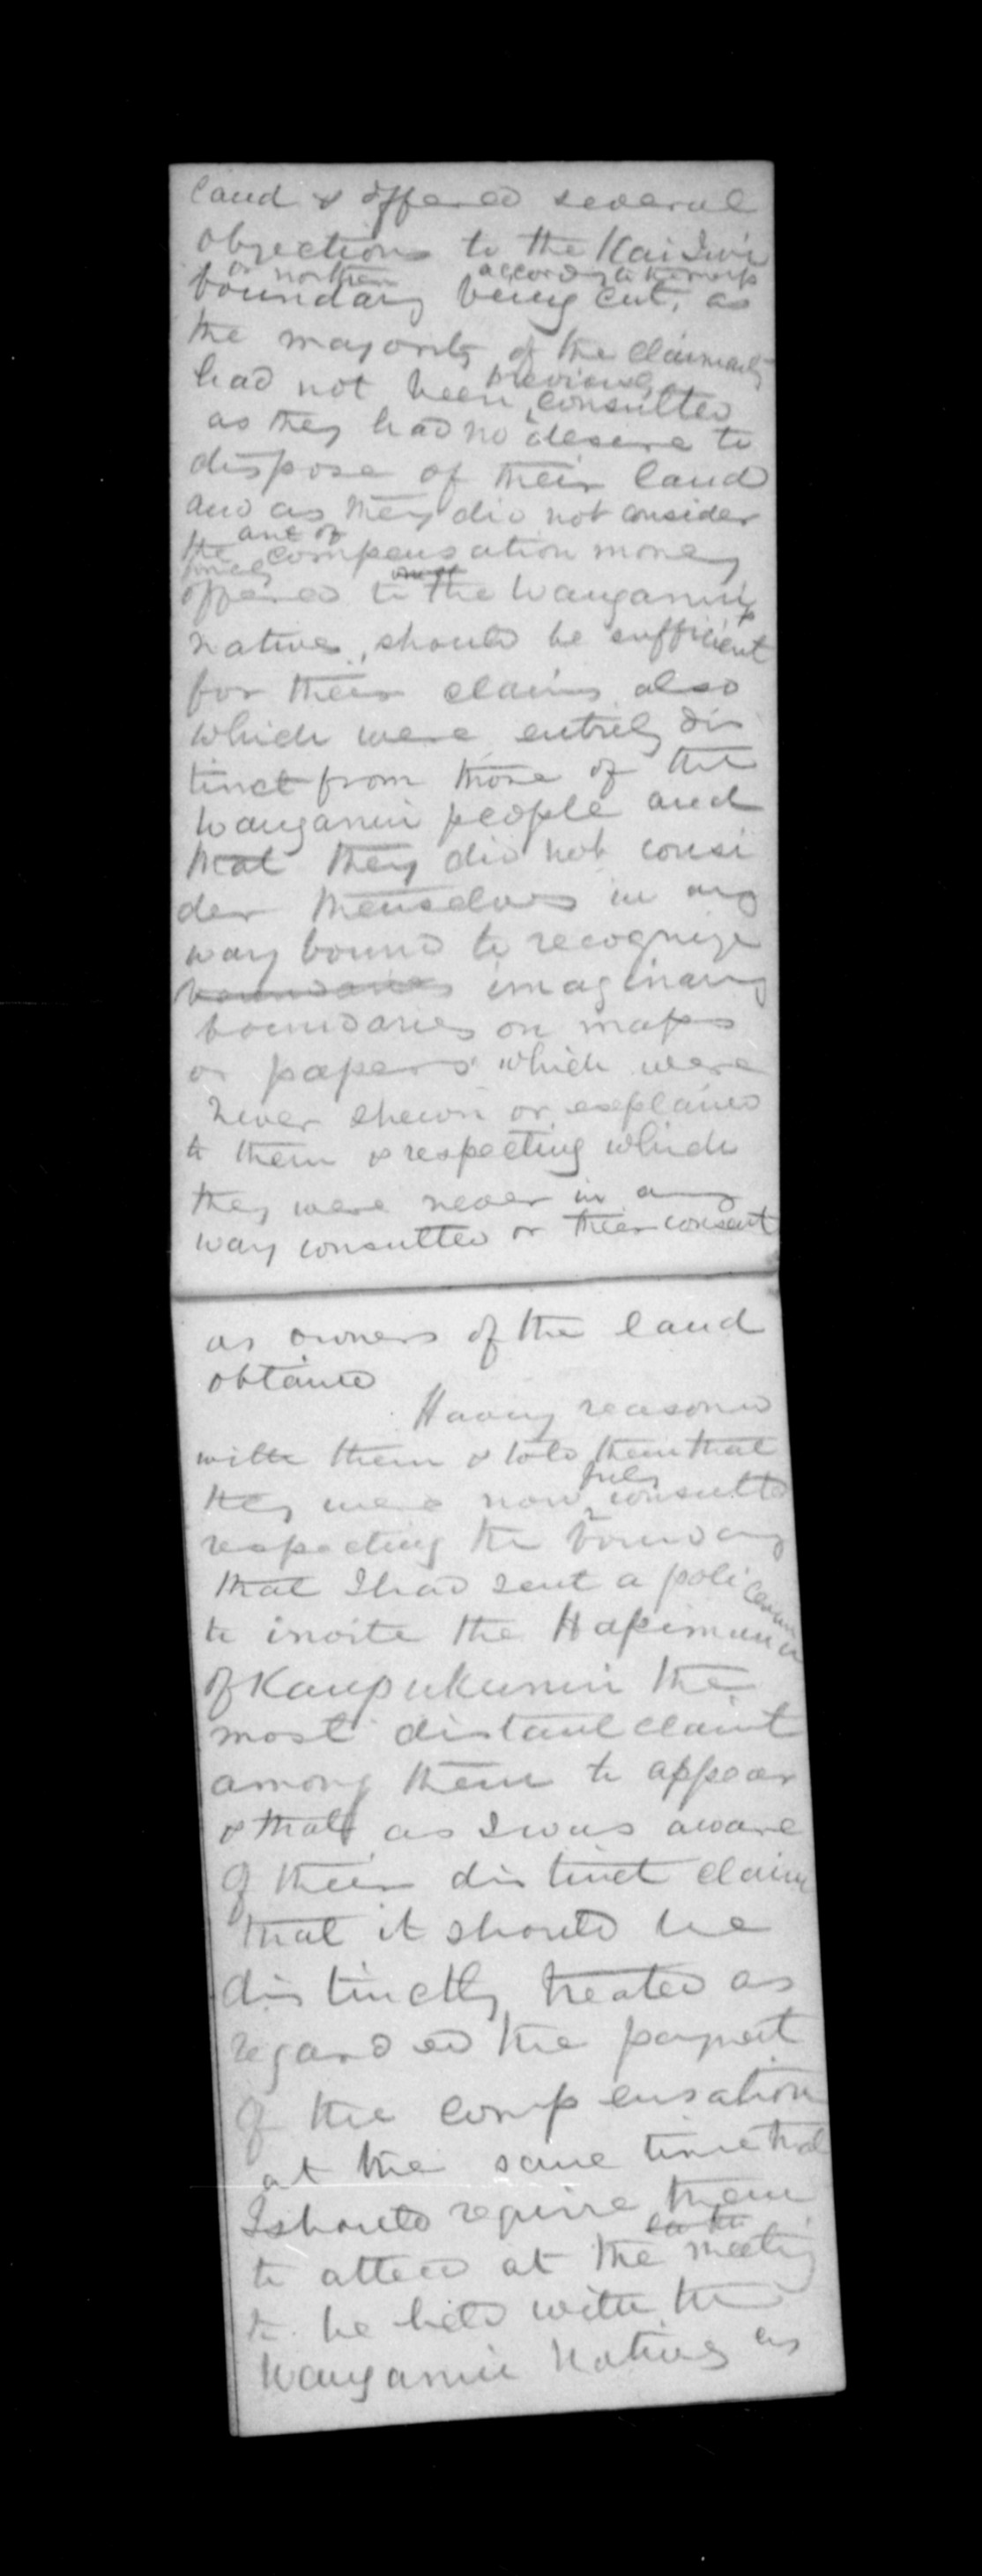 land & offered several
objections to the Kai Iwi
or northern according to the map
boundary being cut, as
the majority of the claimants
previously
had not been consulted
as they had no desire to
dispose of their land
and as they did not consider
amt of
the compensation money
offered to the Wanganui
natives, should be sufficient
for their claims also
which were entirely dis
tinct from those of the
Wanganui people and
that they did not consi
der themselves in any
way bound to recognize
boundaries imaginary
boundaries on maps
or papers which were
never shewn or explained
to them & respecting which
they were never in any
way consulted or their consent
as owners of the land
obtained
Having reasoned
with them & told them that
fully
they were now consulted
respecting the boundary
that I had sent a policeman
to invite the Hapimana
of Kaupukunui the
most distant claimt
among them to appear
& that as I was aware
of their distinct claim
that it should be
distinctly treated as
regarded the payment
of the compensation
at the same time that
I should require them
to attend at the meeting
to be held with the
Wanganui Natives as